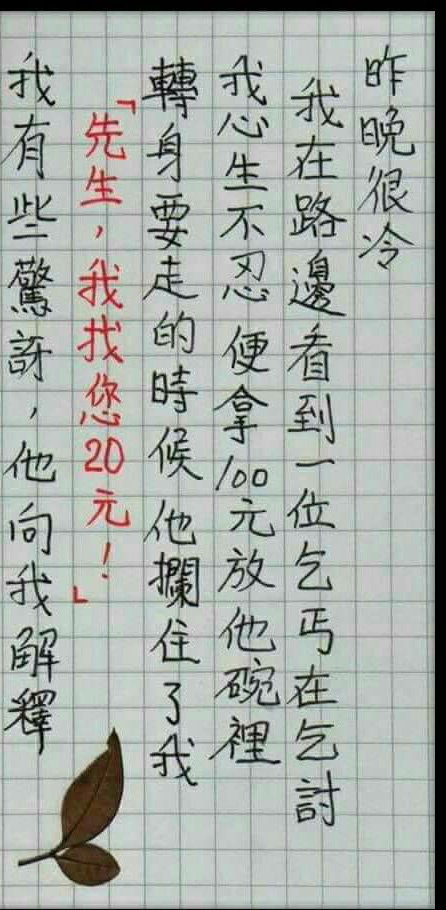 昨晚很冷
我在路邊看到一位乞丐在乞討
我心生不忍便拿100元放他碗裡
轉身要走的時候他攔住了我
「先生，我找您20元！」
我有些驚訝，他向我解釋